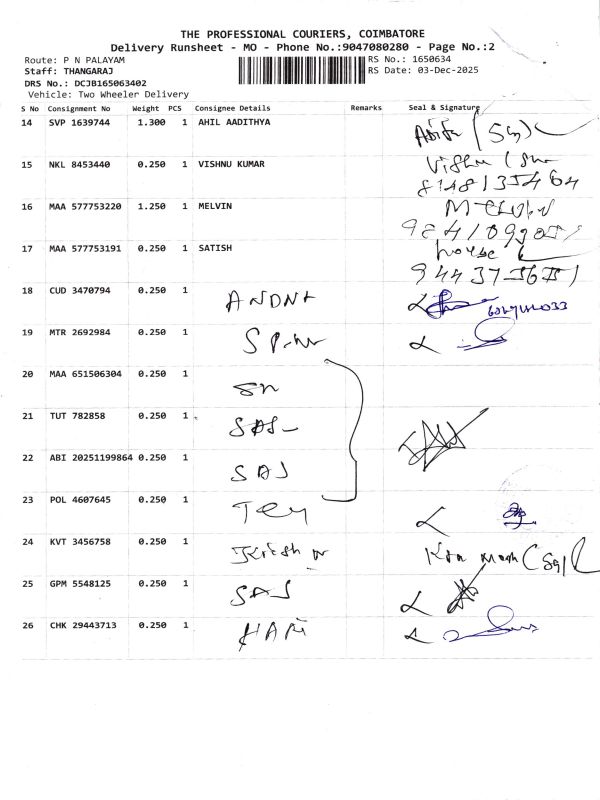 THE PROFESSIONAL COURIERS, COIMBATORE
Delivery Runsheet - MO - Phone No.:9047080280 - Page No.:2
Route: P N PALAYAM
RS No.: 1650634
Staff: THANGARAJ
RS Date: 03-Dec-2025
DRS No.: DCJB165063402
Vehicle: Two Wheeler Delivery
S No Consignment No Weight PCS Consignee Details Remarks Seal & Signature
14 SVP 1639744 1.300 1 AHIL AADITHYA
15 NKL 8453440 0.250 1 VISHNU KUMAR Vishnu
16 MAA 577753220 1.250 1 MELVIN MELVIN
17 MAA 577753191 0.250 1 SATISH house
18 CUD 3470794 0.250 1
19 MTR 2692984 0.250 1
20 MAA 651506304 0.250 1 Sn
21 TUT 782858 0.250 1 SAS
22 ABI 20251199864 0.250 1 SAS
23 POL 4607645 0.250 1
24 KVT 3456758 0.250 1
25 GPM 5548125 0.250 1 SAS
26 CHK 29443713 0.250 1 HARI